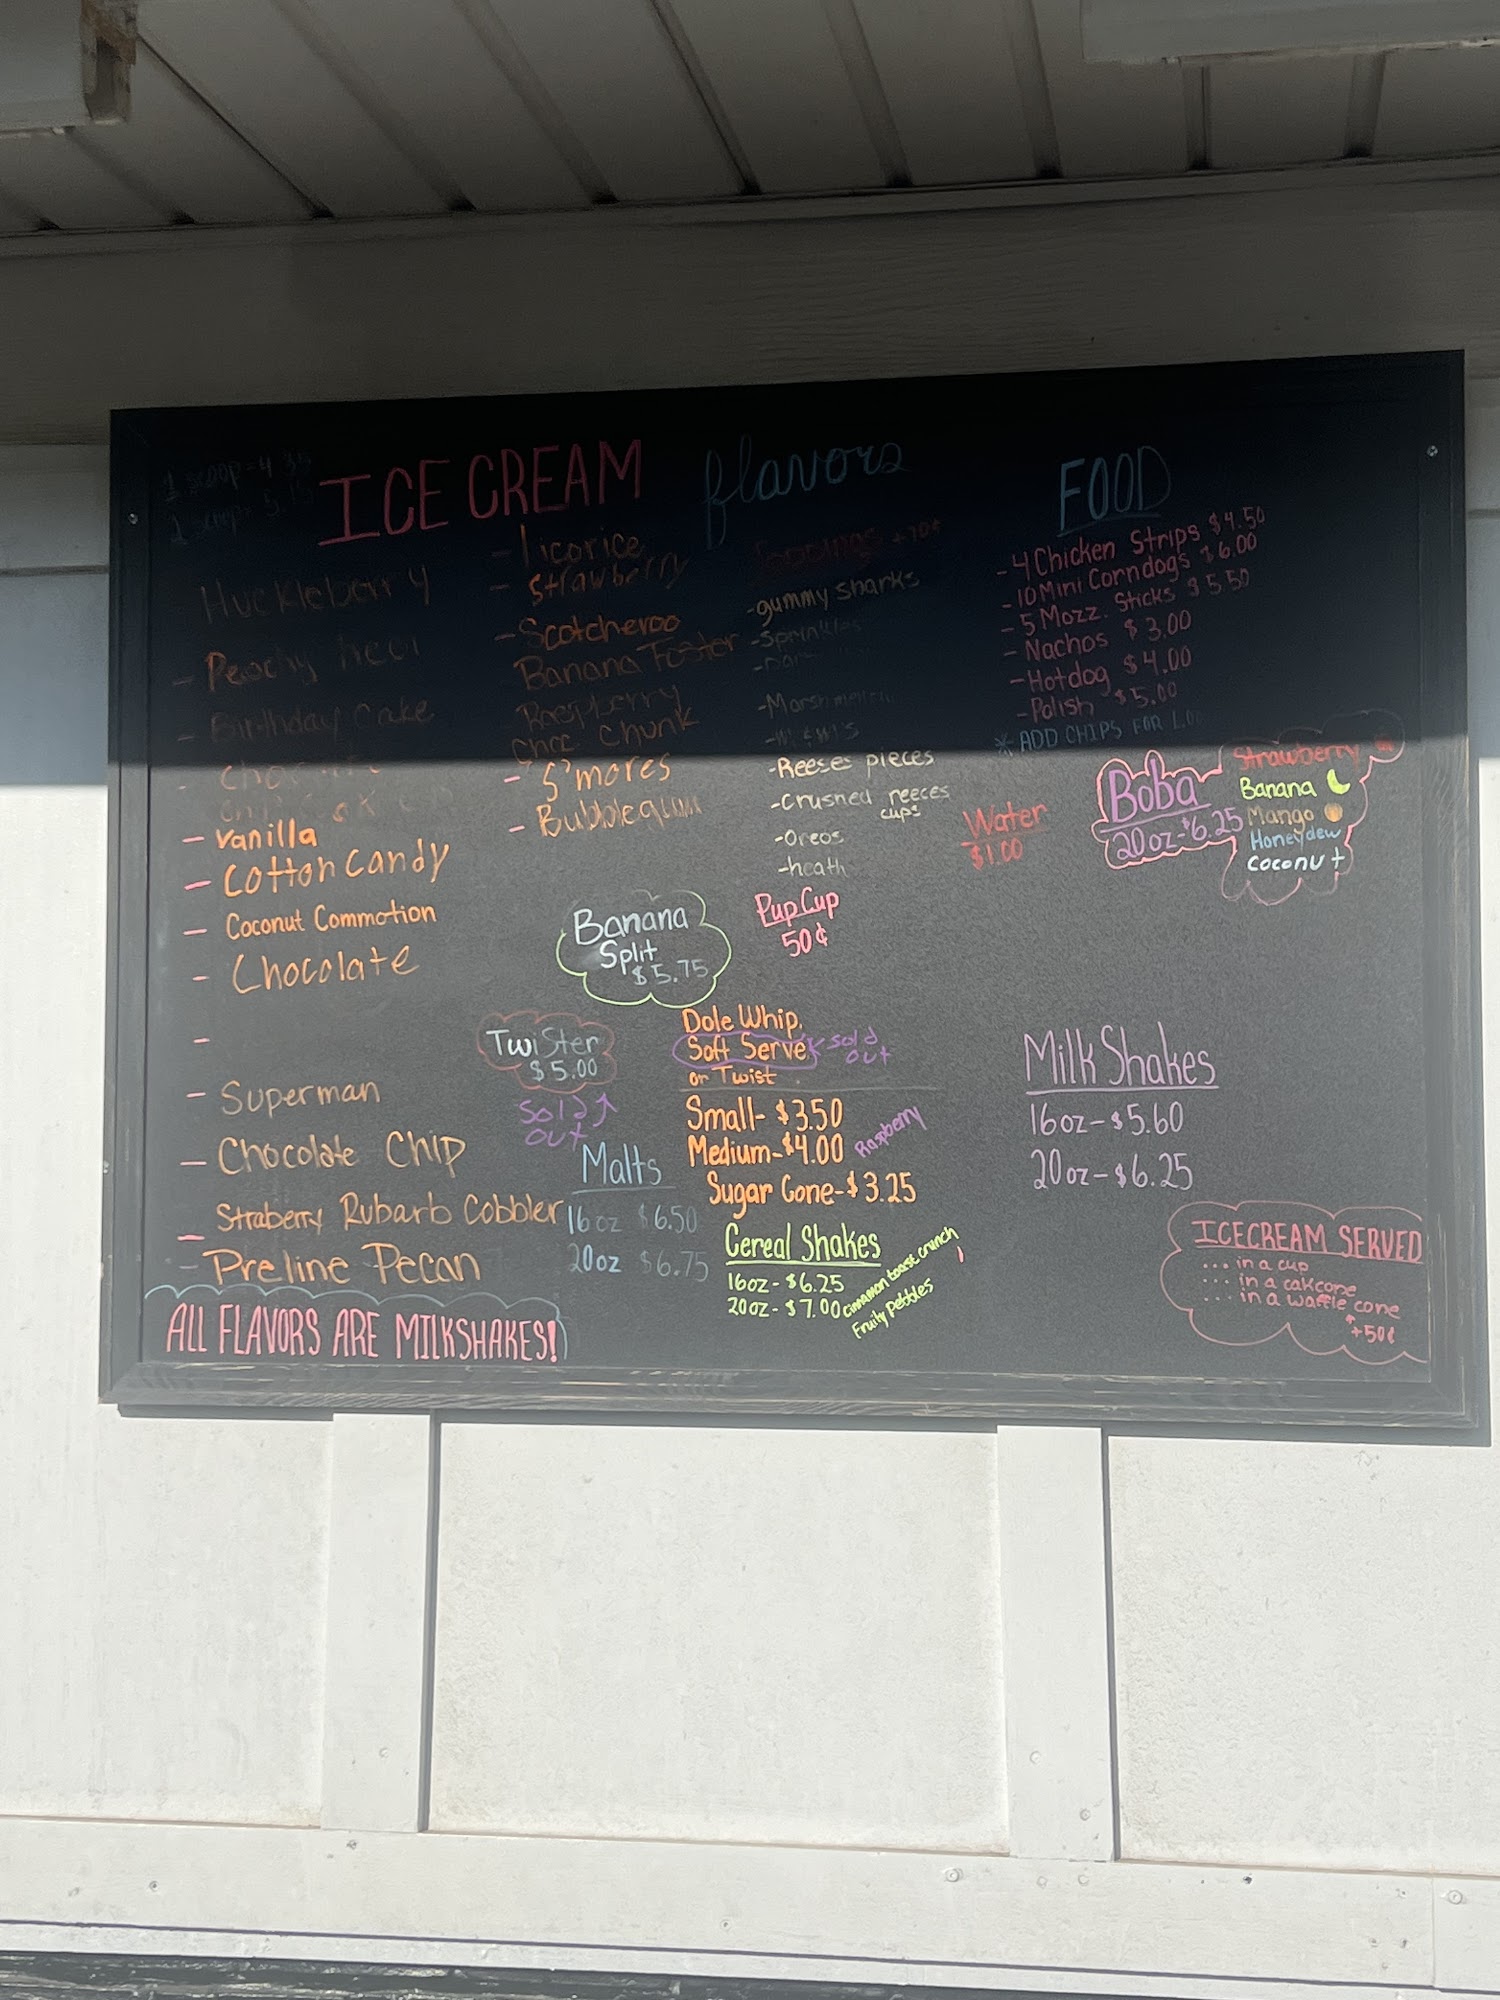 ICE CREAM flavors
1 scoop = 4.35
Huckleberry
- Peachy
- Birthday Cake
- Vanilla
- Cotton Candy
- Coconut Commotion
- Chocolate
-
- Superman
- Chocolate Chip
- Straberry Rubarb Cobbler
- Preline Pecan
ALL FLAVORS ARE MILKSHAKES!
- licorice
- Strawberry
- Scotcheroo
Banana Foster
Raspberry
Choc Chunk
- S'mores
- Bubblegum
Toppings +70¢
- gummy sharks
- Sprinkles
- M&M's
- Reeses pieces
- Crushed reeces
cups
- Oreos
- heath
FOOD
- 4 Chicken Strips $4.50
- 10 Mini Corndogs $6.00
- 5 Mozz. Sticks $5.50
- Nachos $3.00
- Hotdog $4.00
- Polish $5.00
* ADD CHIPS FOR
Water
$1.00
Boba
20oz-$6.25
Strawberry
Banana
Mango
Honeydew
Coconut
Banana
Split
$5.75
Pup Cup
50¢
Twister
$5.00
Sold
out
Dole Whip,
Soft Serve
or Twist
Sold
out
Small- $3.50
Medium-$4.00
Raspberry
Sugar Cone-$3.25
Malts
16oz $6.50
20oz $6.75
Cereal Shakes
16oz-$6.25
20oz-$7.00
Cinnamon toast crunch
Fruity Pebbles
Milk Shakes
16oz-$5.60
20oz-$6.25
ICECREAM SERVED
... in a cup
... in a cakcone
... in a waffle cone
+50¢